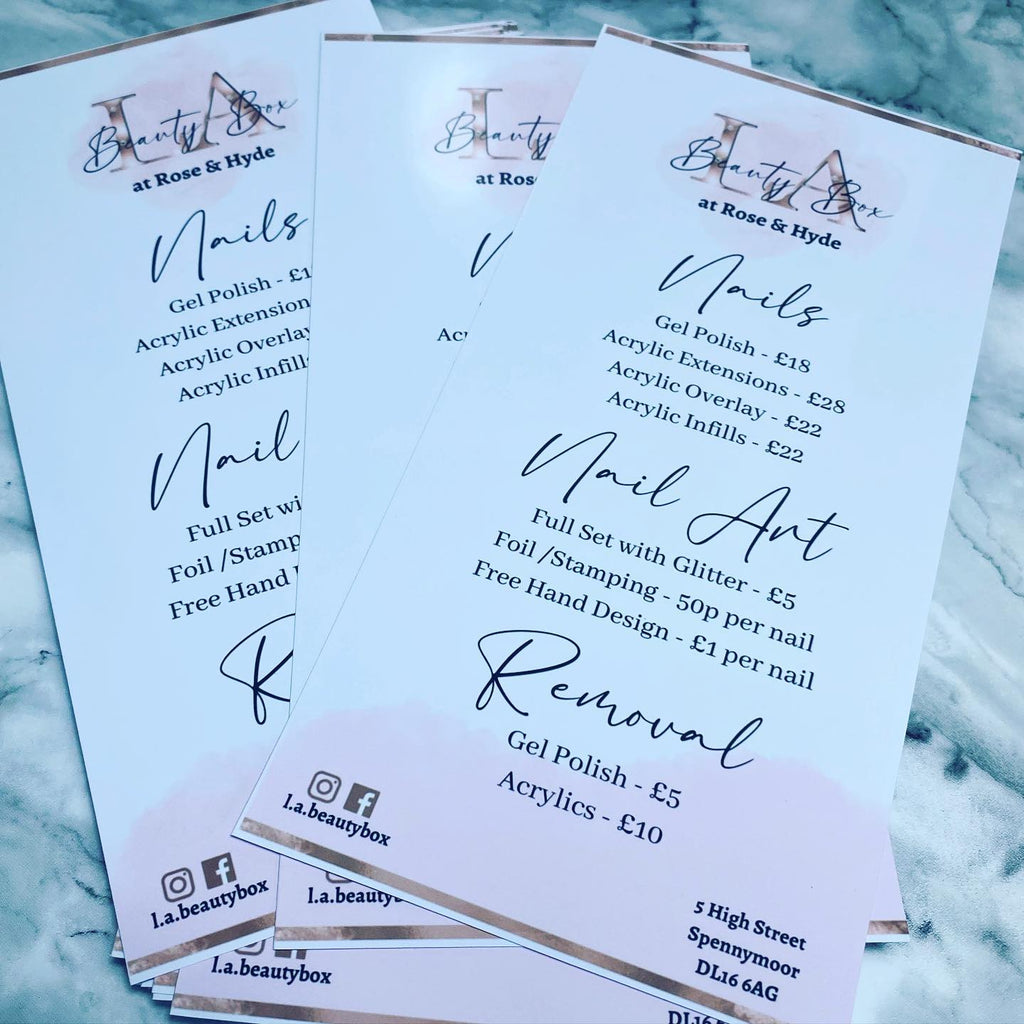 LA
Beauty Box
at Rose & Hyde
Nails
Gel Polish - £1
Acrylic Extension
Acrylic Overlay
Acrylic Infills
Nail
Full Set wi
Foil /Stamp
Free Hand
R
l.a.beautybox
L
Beauty
at Ros
N
Ac
l.a.beauty
l.a.beautybox
DL16
LA
Beauty Box
at Rose & Hyde
Nails
Gel Polish - £18
Acrylic Extensions - £28
Acrylic Overlay - £22
Acrylic Infills - £22
Nail Art
Full Set with Glitter - £5
Foil /Stamping - 50p per nail
Free Hand Design - £1 per nail
Removal
Gel Polish - £5
Acrylics - £10
l.a.beautybox
5 High Street
Spennymoor
DL16 6AG